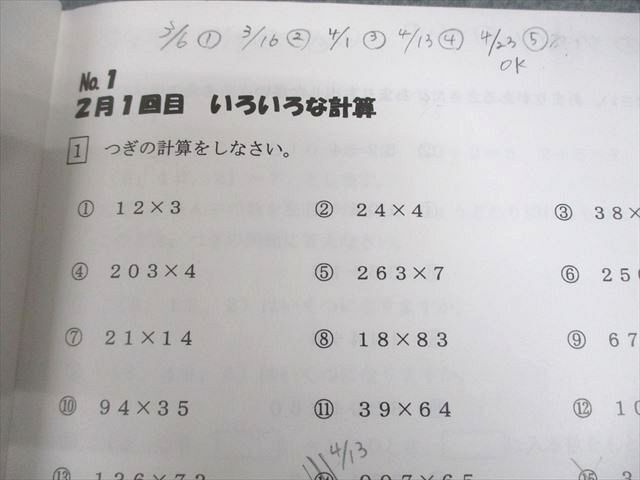 3/6 ① 3/16 ② 4/1 ③ 4/13 ④ 4/23 ⑤
OK
No.1
2月1回目 いろいろな計算
1 つぎの計算をしなさい。
① 12×3 ② 24×4 ③ 38×
④ 203×4 ⑤ 263×7 ⑥ 250
⑦ 21×14 ⑧ 18×83 ⑨ 67
⑩ 94×35 ⑪ 39×64 ⑫ 10
4/13
⑬ ⑭ ⑮ 3